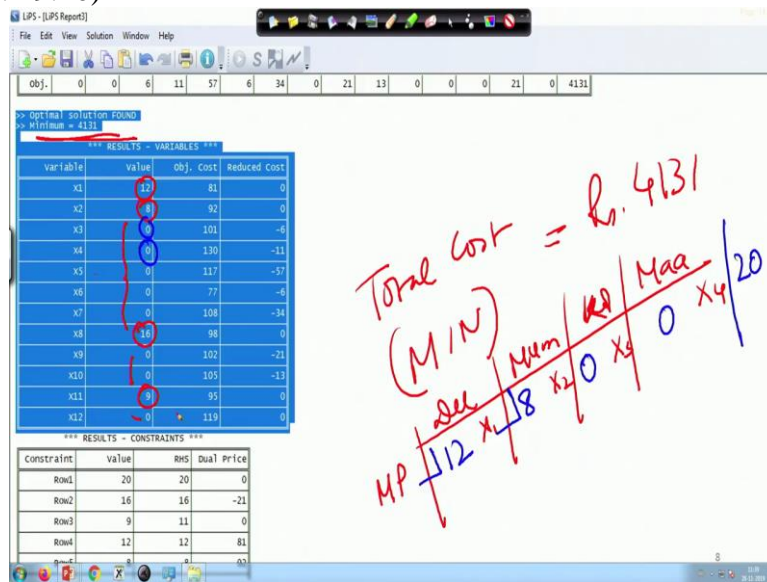 LiPS - [LiPS Report3]
File Edit View Solution Window Help
Obj. 0 0 6 11 57 6 34 0 21 13 0 0 0 21 0 4131
>> Optimal solution FOUND
>> Minimum = 4131
*** RESULTS - VARIABLES ***
Variable Value Obj. Cost Reduced Cost
X1 12 81 0
X2 8 92 0
X3 0 101 -6
X4 0 130 -11
X5 0 117 -57
X6 0 77 -6
X7 0 108 -34
X8 16 98 0
X9 0 102 -21
X10 0 105 -13
X11 9 95 0
X12 0 119 0
*** RESULTS - CONSTRAINTS ***
Constraint Value RHS Dual Price
Row1 20 20 0
Row2 16 16 -21
Row3 9 11 0
Row4 12 12 81
Total Cost = Rs. 4131
(MIN)
Del Mum Kol Maa
MP 12 X1 8 X2 0 X3 0 X4 20
8